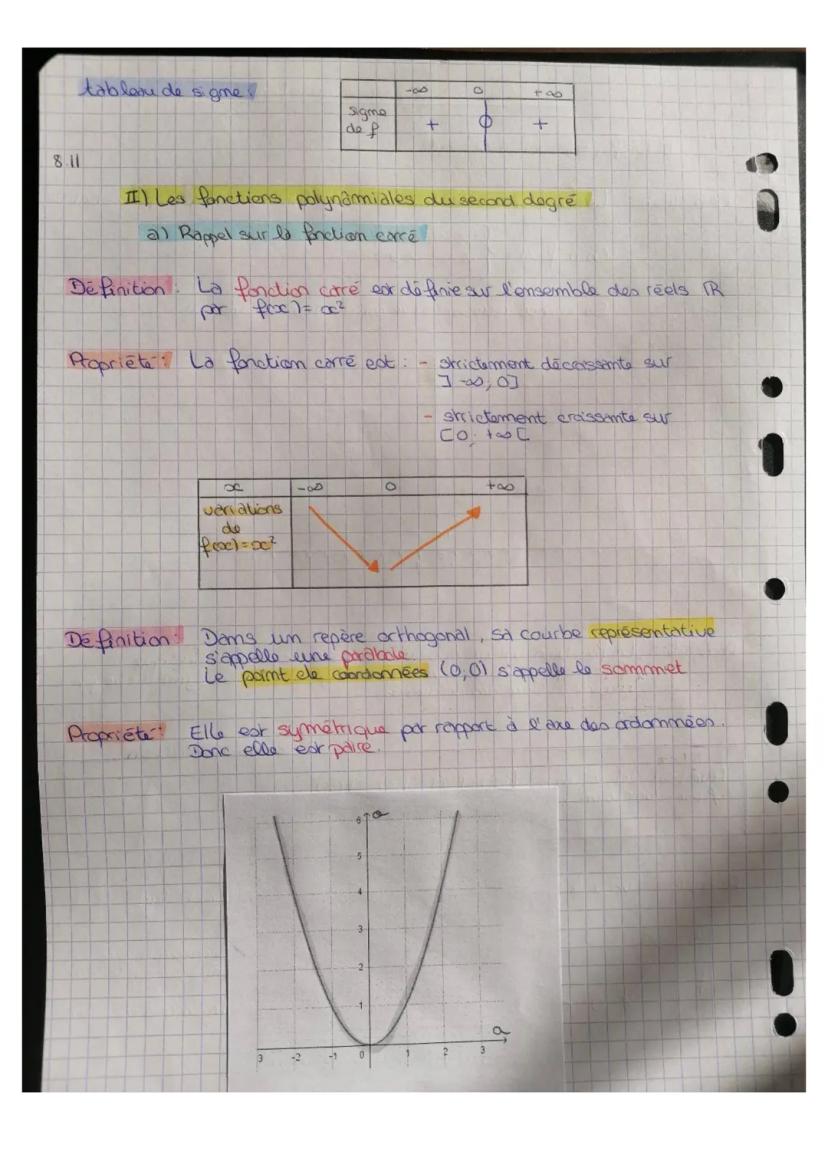 tableau de signe:
-∞ 0 +∞
signe de f + 0 +
8.11
II) Les fonctions polynômiales du second degré
a) Rappel sur la fonction carré
Définition: La fonction carré est définie sur l'ensemble des réels ℝ
par f(x) = x²
Propriété: La fonction carré est : - strictement décroissante sur
]-∞, 0]
- strictement croissante sur
[0; +∞[
x -∞ 0 +∞
variations
de
f(x)=x²
Définition: Dans un repère orthogonal, sa courbe représentative
s'appelle une parabole.
Le point de coordonnées (0,0) s'appelle le sommet
Propriété: Elle est symétrique par rapport à l'axe des ordonnées.
Donc elle est paire.
6
5
4
3
2
1
3 -2 -1 0 1 2 3